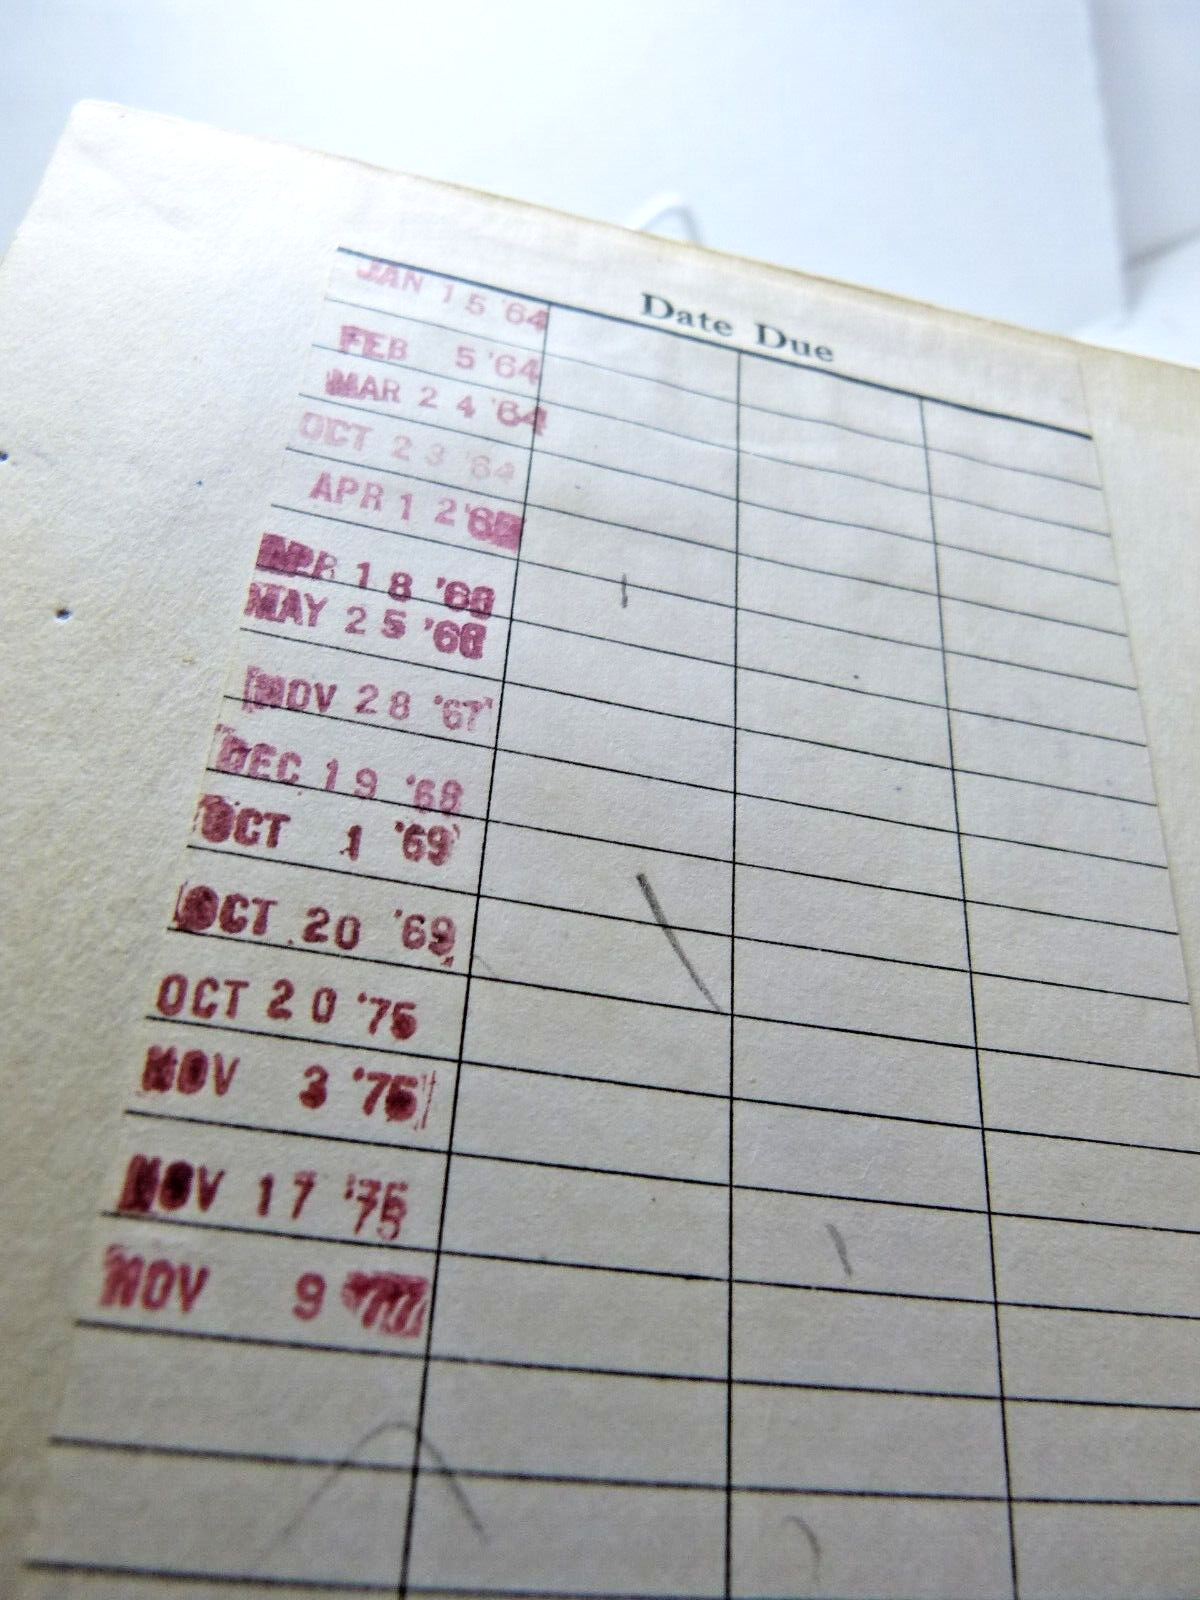 Date Due
JAN 15 '64
FEB 5 '64
MAR 24 '64
OCT 23 '64
APR 12
APR 18 '66
MAY 25 '66
NOV 28 '67
DEC 19 '68
OCT 1 '69
OCT 20 '69
OCT 20 '75
NOV 3 '75
NOV 17 '75
NOV 9